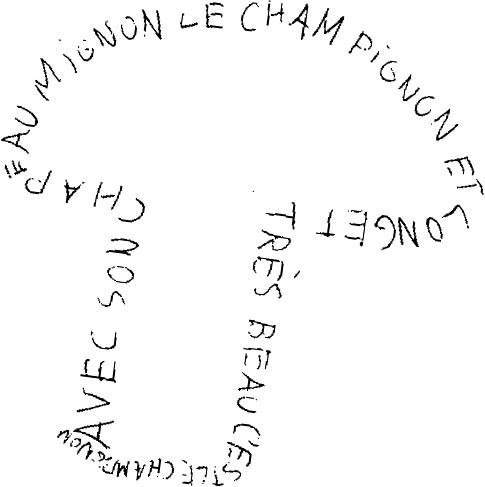 AVEC SON CHAPEAU MIGNON LE CHAMPIGNON ET LONG ET TRÈS BEAU C'EST LE CHAMPIGNON